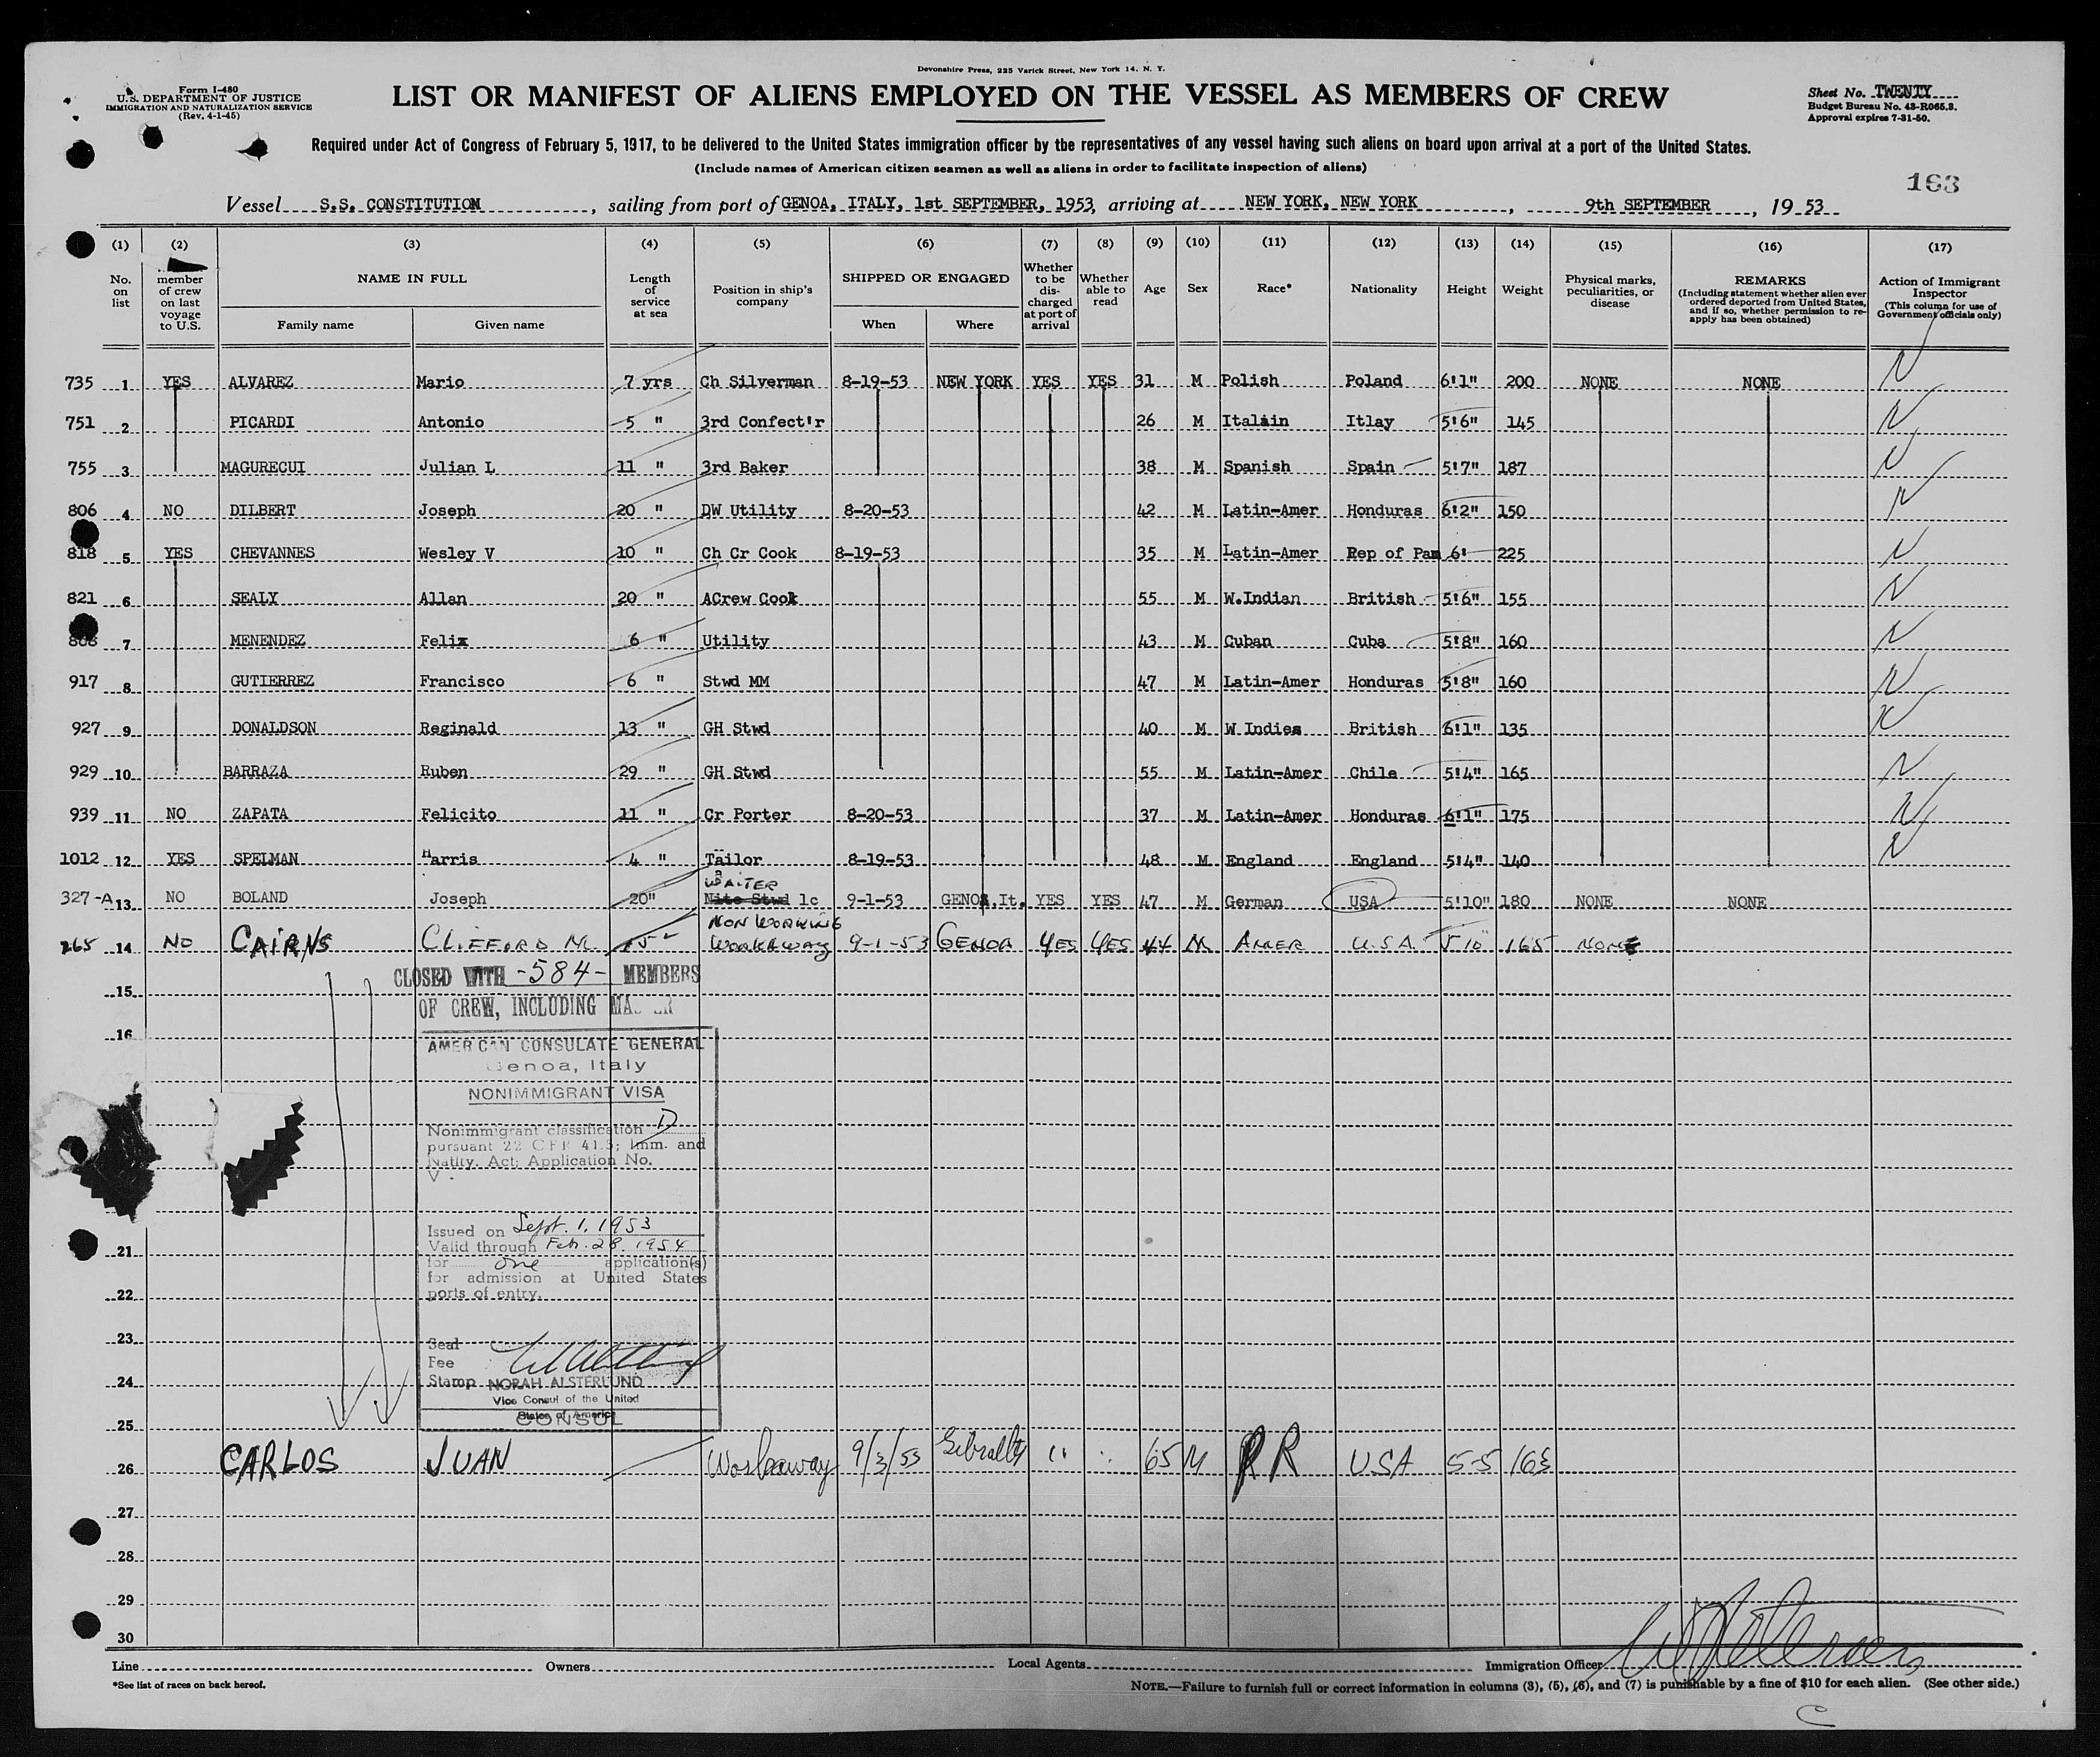 Devonshire Press, 225 Varick Street, New York 14, N. Y.
Form I-480
U.S. DEPARTMENT OF JUSTICE
IMMIGRATION AND NATURALIZATION SERVICE
(Rev. 4-1-45)
LIST OR MANIFEST OF ALIENS EMPLOYED ON THE VESSEL AS MEMBERS OF CREW
Sheet No. TWENTY
Budget Bureau No. 43-R065.3.
Approval expires 7-31-50.
Required under Act of Congress of February 5, 1917, to be delivered to the United States immigration officer by the representatives of any vessel having such aliens on board upon arrival at a port of the United States.
(Include names of American citizen seamen as well as aliens in order to facilitate inspection of aliens)
163
Vessel S.S. CONSTITUTION, sailing from port of GENOA, ITALY, 1st SEPTEMBER, 1953, arriving at NEW YORK, NEW YORK, 9th SEPTEMBER, 19 53
(1) (2) (3) (4) (5) (6) (7) (8) (9) (10) (11) (12) (13) (14) (15) (16) (17)
No. on list
member of crew on last voyage to U.S.
NAME IN FULL
Family name Given name
Length of service at sea
Position in ship's company
SHIPPED OR ENGAGED
When Where
Whether to be discharged at port of arrival
Whether able to read
Age
Sex
Race*
Nationality
Height
Weight
Physical marks, peculiarities, or disease
REMARKS
(Including statement whether alien ever ordered deported from United States, and if so, whether permission to re-apply has been obtained)
Action of Immigrant Inspector
(This column for use of Government officials only)
735 1 YES ALVAREZ Mario 7 yrs Ch Silverman 8-19-53 NEW YORK YES YES 31 M Polish Poland 6'1" 200 NONE NONE N
751 2 PICARDI Antonio 5 " 3rd Confect'r 26 M Italain Itlay 5'6" 145 N
755 3 MAGURECUI Julian L 11 " 3rd Baker 38 M Spanish Spain 5'7" 187 N
806 4 NO DILBERT Joseph 20 " DW Utility 8-20-53 42 M Latin-Amer Honduras 6'2" 150 N
818 5 YES CHEVANNES Wesley V 10 " Ch Cr Cook 8-19-53 35 M Latin-Amer Rep of Pam 6' 225 N
821 6 SEALY Allan 20 " ACrew Cook 55 M W.Indian British 5'6" 155 N
7 MENENDEZ Felix 6 " Utility 43 M Cuban Cuba 5'8" 160 N
917 8 GUTIERREZ Francisco 6 " Stwd MM 47 M Latin-Amer Honduras 5'8" 160 N
927 9 DONALDSON Reginald 13 " GH Stwd 40 M W Indies British 6'1" 135 N
929 10 BARRAZA Ruben 29 " GH Stwd 55 M Latin-Amer Chile 5'4" 165 N
939 11 NO ZAPATA Felicito 11 " Cr Porter 8-20-53 37 M Latin-Amer Honduras 6'1" 175 N
1012 12 YES SPELMAN Harris 4 " Tailor 8-19-53 48 M England England 5'4" 140 N
WAITER
327-A 13 NO BOLAND Joseph 20" Nite Stwd 1c 9-1-53 GENOA, It. YES YES 47 M German USA 5'10" 180 NONE NONE
NON WORKING
265 14 NO CAIRNS CLIFFORD M. 15 WORKAWAY 9-1-53 GENOA YES YES 44 M AMER U.S.A. 5 10" 165 NONE
CLOSED WITH -584- MEMBERS
15
OF CREW, INCLUDING
16
AMERICAN CONSULATE GENERAL
Genoa, Italy
NONIMMIGRANT VISA
Nonimmigrant classification D
pursuant 22 CFR 41.5; Imm. and
Natlty. Act; Application No.
V -
Issued on Sept. 1, 1953
Valid through Feb. 28, 1954
21
for one application(s)
for admission at United States
22
ports of entry.
23
Seal
Fee
24
Stamp NORAH ALSTERLUND
Vice Consul of the United
States of America
CONSUL
25
26 CARLOS JUAN Workaway 9/3/53 Gibraltr " 65 M PR USA 5-5 163
27
28
29
30
Line Owners Local Agents Immigration Officer
*See list of races on back hereof.
NOTE.—Failure to furnish full or correct information in columns (3), (5), (6), and (7) is punishable by a fine of $10 for each alien. (See other side.)
C